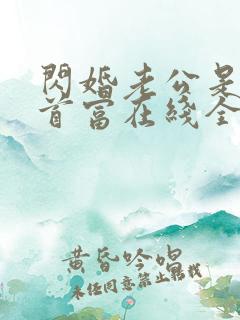 閃婚老公是
首富在綫全
黄昏吟唱
未经同意禁止转载